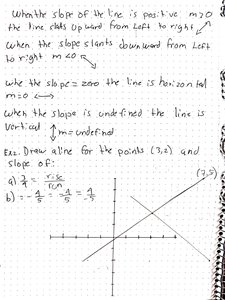 When the slope of the line is positive m>0
the line slants upward from left to right ↗
When the slope slants downward from Left
to right m<0 ↖
whe the slope = zero the line is horizontal
m=0 ↔
when the slope is undefined the line is
vertical ↕ m=undefined
Ex2. Draw a line for the points (3,2) and
slope of:
a) 3/4 = rise/run
b) = -4/5 = -4/5 = 4/-5
(7,5)